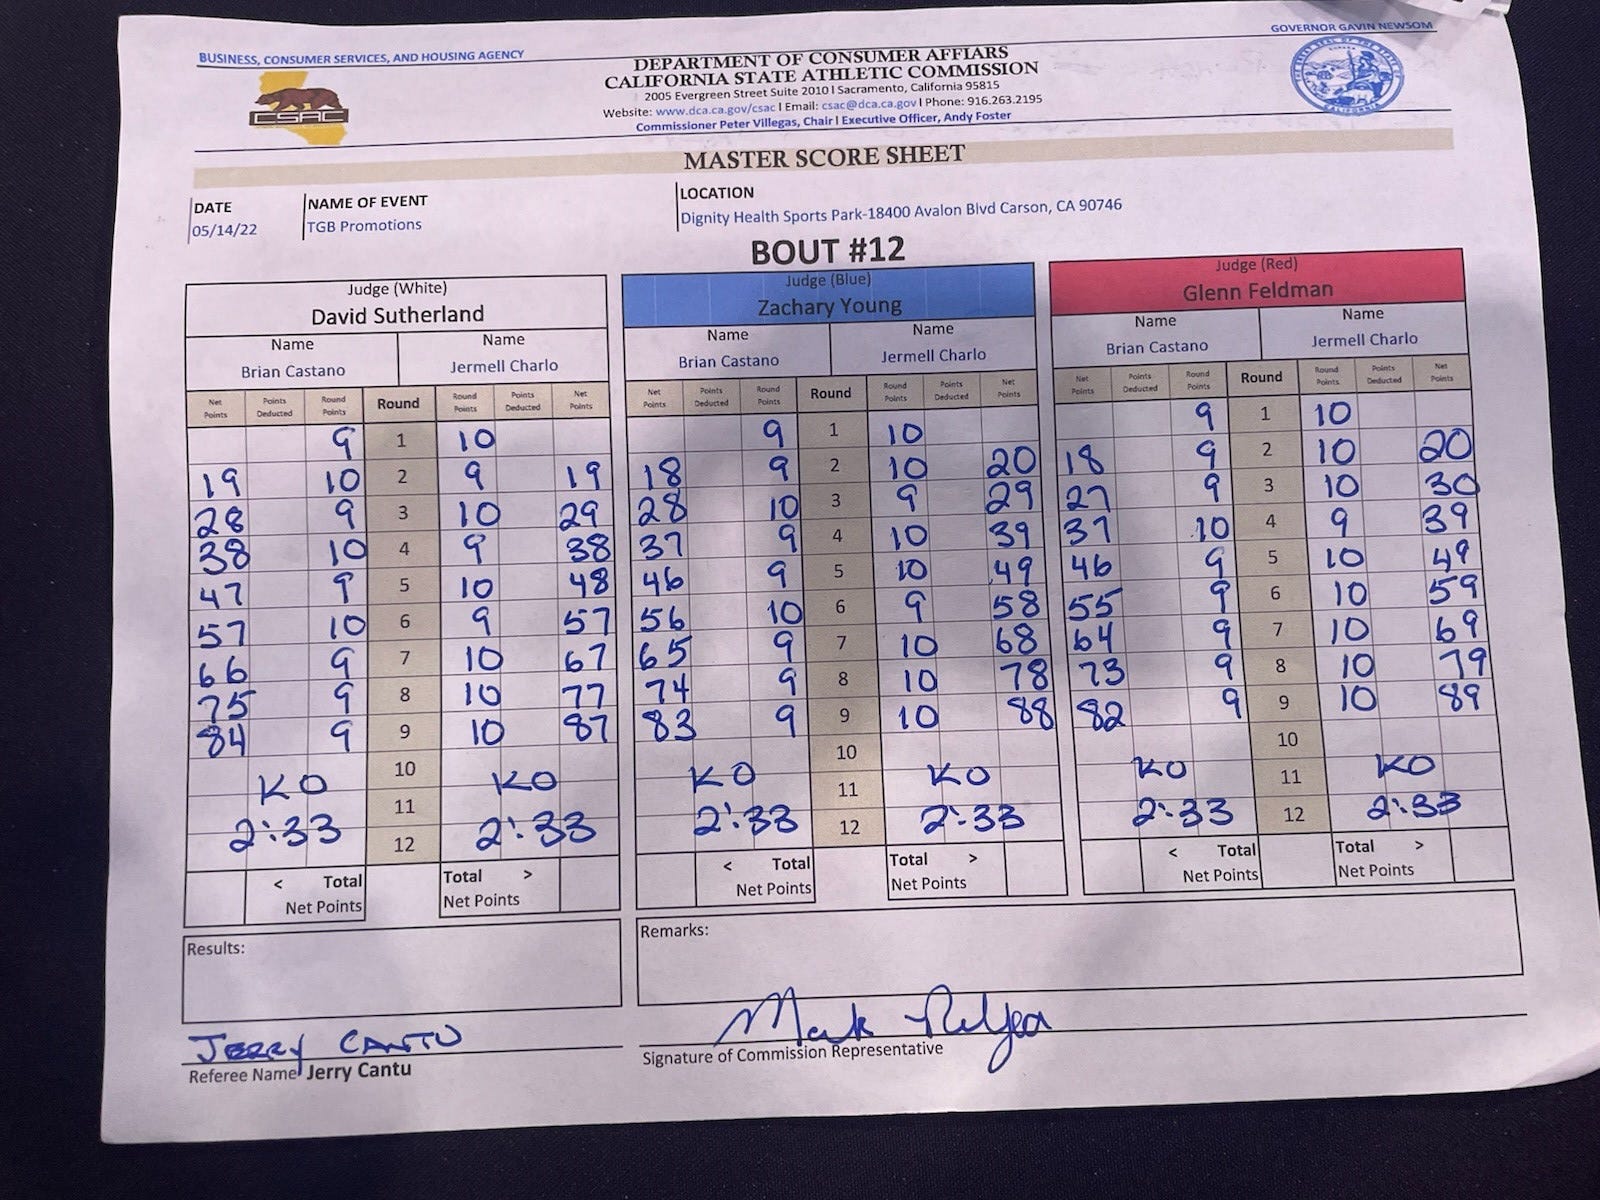 BUSINESS, CONSUMER SERVICES, AND HOUSING AGENCY
GOVERNOR GAVIN NEWSOM
CSAC
DEPARTMENT OF CONSUMER AFFIARS
CALIFORNIA STATE ATHLETIC COMMISSION
2005 Evergreen Street Suite 2010 I Sacramento, California 95815
Website: www.dca.ca.gov/csac I Email: csac@dca.ca.gov I Phone: 916.263.2195
Commissioner Peter Villegas, Chair I Executive Officer, Andy Foster
MASTER SCORE SHEET
DATE NAME OF EVENT LOCATION
05/14/22 TGB Promotions Dignity Health Sports Park-18400 Avalon Blvd Carson, CA 90746
BOUT #12
Judge (White) Judge (Blue) Judge (Red)
David Sutherland Zachary Young Glenn Feldman
Name Name Name Name Name Name
Brian Castano Jermell Charlo Brian Castano Jermell Charlo Brian Castano Jermell Charlo
Net Points Points Deducted Round Points Round Round Points Points Deducted Net Points Net Points Points Deducted Round Points Round Round Points Points Deducted Net Points Net Points Points Deducted Round Points Round Round Points Points Deducted Net Points
9 1 10 9 1 10 9 1 10
19 10 2 9 19 18 9 2 10 20 18 9 2 10 20
28 9 3 10 29 28 10 3 9 29 27 9 3 10 30
38 10 4 9 38 37 9 4 10 39 37 10 4 9 39
47 9 5 10 48 46 9 5 10 49 46 9 5 10 49
57 10 6 9 57 56 10 6 9 58 55 9 6 10 59
66 9 7 10 67 65 9 7 10 68 64 9 7 10 69
75 9 8 10 77 74 9 8 10 78 73 9 8 10 79
84 9 9 10 87 83 9 9 10 88 82 9 9 10 89
KO 10 KO KO 10 KO KO 10 KO
11 11 11
2:33 12 2:33 2:33 12 2:33 2:33 12 2:33
< Total Total > < Total Total > < Total Total >
Net Points Net Points Net Points Net Points Net Points Net Points
Results: Remarks:
JERRY CANTU Mark Relyea
Referee Name Jerry Cantu Signature of Commission Representative